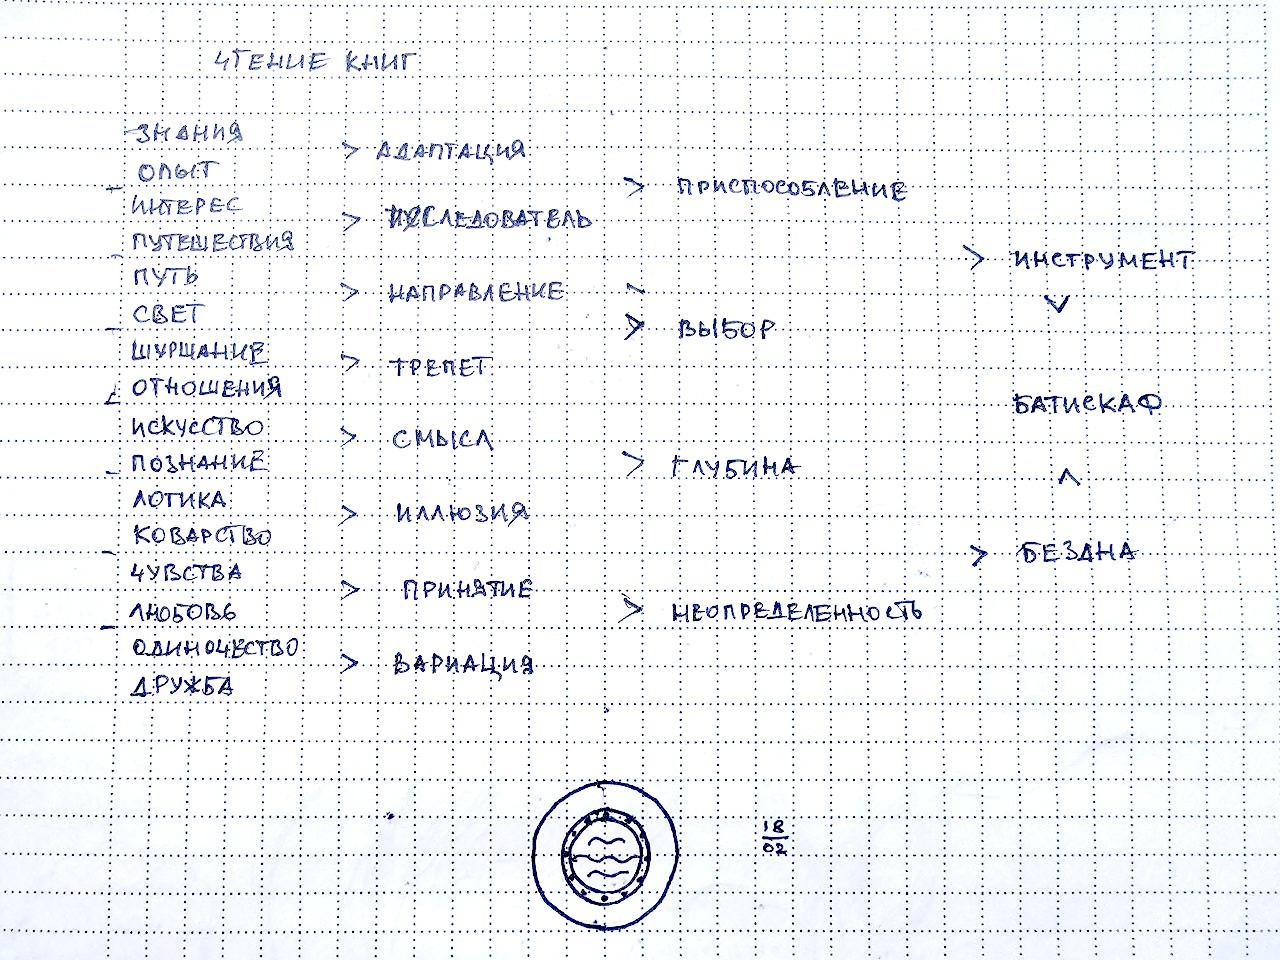 ЧТЕНИЕ КНИГ
ЗНАНИЯ
ОПЫТ
ИНТЕРЕС
ПУТЕШЕСТВИЯ
ПУТЬ
СВЕТ
ШУРШАНИЕ
ОТНОШЕНИЯ
ИСКУССТВО
ПОЗНАНИЕ
ЛОГИКА
КОВАРСТВО
ЧУВСТВА
ЛЮБОВЬ
ОДИНОЧЕСТВО
ДРУЖБА
> АДАПТАЦИЯ
> ИССЛЕДОВАТЕЛЬ
> НАПРАВЛЕНИЕ
> ТРЕПЕТ
> СМЫСЛ
> ИЛЛЮЗИЯ
> ПРИНЯТИЕ
> ВАРИАЦИЯ
> ПРИСПОСОБЛЕНИЕ
> ВЫБОР
> ГЛУБИНА
> НЕОПРЕДЕЛЕННОСТЬ
> ИНСТРУМЕНТ
БАТИСКАФ
> БЕЗДНА
18
02